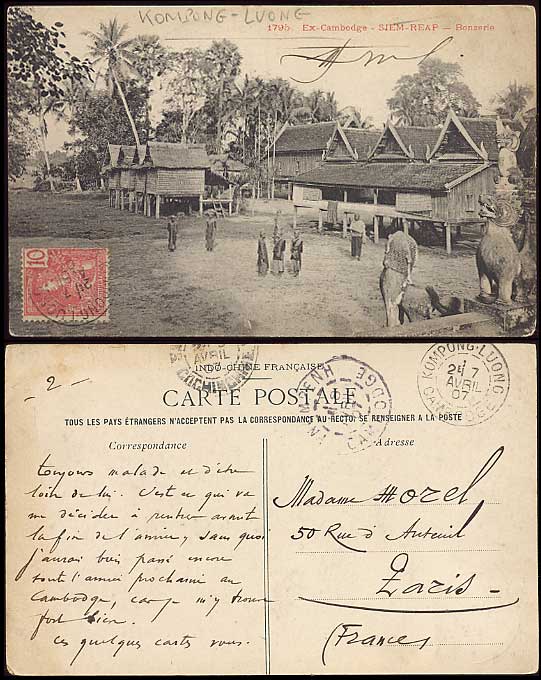 KOMPONG-LUONG
1795. Ex-Cambodge - SIEM-REAP — Bonzerie
10
- 2 -
AVRIL
COCHINCHINE
INDO-CHINE FRANÇAISE
CARTE POSTALE
CAMBODGE
KOMPONG-LUONG
1
24 7
AVRIL
07
CAMBODGE
TOUS LES PAYS ÉTRANGERS N'ACCEPTENT PAS LA CORRESPONDANCE AU RECTO. SE RENSEIGNER A LA POSTE
Correspondance
toujours malade et d'être
loin de lui. C'est ce qui va
me décider à rentrer avant
la fin de l'année, sans quoi
j'aurai bien passé encore
tout l'année prochaine au
Cambodge, car je m'y trouve
fort bien.
Ces quelques cartes vous
Adresse
Madame Morel
50 Rue d'Auteuil
Paris
(France)